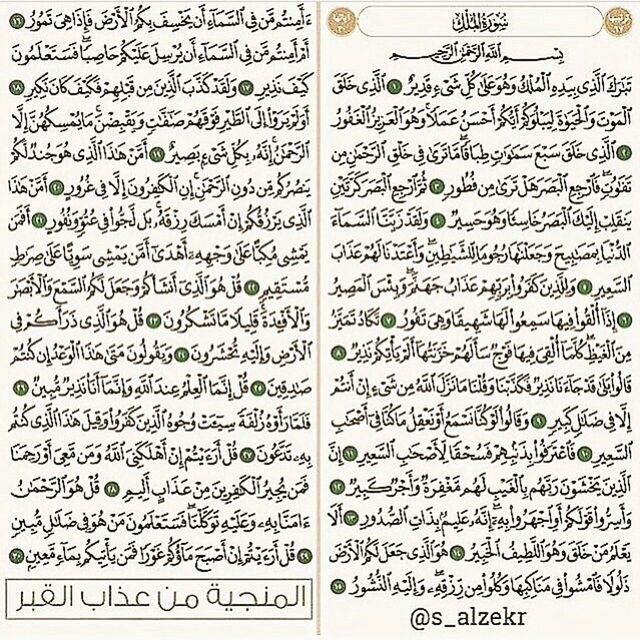 ترتيبها ٦٧
سُورَةُ المُلْكِ
آياتها ٣٠
بِسْمِ ٱللَّهِ ٱلرَّحْمَٰنِ ٱلرَّحِيمِ
تَبَٰرَكَ ٱلَّذِى بِيَدِهِ ٱلْمُلْكُ وَهُوَ عَلَىٰ كُلِّ شَىْءٍ قَدِيرٌ ١ ٱلَّذِى خَلَقَ
ٱلْمَوْتَ وَٱلْحَيَوٰةَ لِيَبْلُوَكُمْ أَيُّكُمْ أَحْسَنُ عَمَلًا ۚ وَهُوَ ٱلْعَزِيزُ ٱلْغَفُورُ
٢ ٱلَّذِى خَلَقَ سَبْعَ سَمَٰوَٰتٍ طِبَاقًا ۖ مَّا تَرَىٰ فِى خَلْقِ ٱلرَّحْمَٰنِ مِن
تَفَٰوُتٍ ۖ فَٱرْجِعِ ٱلْبَصَرَ هَلْ تَرَىٰ مِن فُطُورٍ ٣ ثُمَّ ٱرْجِعِ ٱلْبَصَرَ كَرَّتَيْنِ
يَنقَلِبْ إِلَيْكَ ٱلْبَصَرُ خَاسِئًا وَهُوَ حَسِيرٌ ٤ وَلَقَدْ زَيَّنَّا ٱلسَّمَآءَ
ٱلدُّنْيَا بِمَصَٰبِيحَ وَجَعَلْنَٰهَا رُجُومًا لِّلشَّيَٰطِينِ ۖ وَأَعْتَدْنَا لَهُمْ عَذَابَ
ٱلسَّعِيرِ ٥ وَلِلَّذِينَ كَفَرُوا۟ بِرَبِّهِمْ عَذَابُ جَهَنَّمَ ۖ وَبِئْسَ ٱلْمَصِيرُ
٦ إِذَآ أُلْقُوا۟ فِيهَا سَمِعُوا۟ لَهَا شَهِيقًا وَهِىَ تَفُورُ ٧ تَكَادُ تَمَيَّزُ
مِنَ ٱلْغَيْظِ ۖ كُلَّمَآ أُلْقِىَ فِيهَا فَوْجٌ سَأَلَهُمْ خَزَنَتُهَآ أَلَمْ يَأْتِكُمْ نَذِيرٌ ٨
قَالُوا۟ بَلَىٰ قَدْ جَآءَنَا نَذِيرٌ فَكَذَّبْنَا وَقُلْنَا مَا نَزَّلَ ٱللَّهُ مِن شَىْءٍ إِنْ أَنتُمْ
إِلَّا فِى ضَلَٰلٍ كَبِيرٍ ٩ وَقَالُوا۟ لَوْ كُنَّا نَسْمَعُ أَوْ نَعْقِلُ مَا كُنَّا فِىٓ أَصْحَٰبِ
ٱلسَّعِيرِ ١٠ فَٱعْتَرَفُوا۟ بِذَنۢبِهِمْ فَسُحْقًا لِّأَصْحَٰبِ ٱلسَّعِيرِ ١١ إِنَّ
ٱلَّذِينَ يَخْشَوْنَ رَبَّهُم بِٱلْغَيْبِ لَهُم مَّغْفِرَةٌ وَأَجْرٌ كَبِيرٌ ١٢
وَأَسِرُّوا۟ قَوْلَكُمْ أَوِ ٱجْهَرُوا۟ بِهِۦٓ ۖ إِنَّهُۥ عَلِيمٌۢ بِذَاتِ ٱلصُّدُورِ ١٣ أَلَا
يَعْلَمُ مَنْ خَلَقَ وَهُوَ ٱللَّطِيفُ ٱلْخَبِيرُ ١٤ هُوَ ٱلَّذِى جَعَلَ لَكُمُ ٱلْأَرْضَ
ذَلُولًا فَٱمْشُوا۟ فِى مَنَاكِبِهَا وَكُلُوا۟ مِن رِّزْقِهِۦ ۖ وَإِلَيْهِ ٱلنُّشُورُ ١٥
@s_alzekr
ءَأَمِنتُم مَّن فِى ٱلسَّمَآءِ أَن يَخْسِفَ بِكُمُ ٱلْأَرْضَ فَإِذَا هِىَ تَمُورُ ١٦
أَمْ أَمِنتُم مَّن فِى ٱلسَّمَآءِ أَن يُرْسِلَ عَلَيْكُمْ حَاصِبًا ۖ فَسَتَعْلَمُونَ
كَيْفَ نَذِيرِ ١٧ وَلَقَدْ كَذَّبَ ٱلَّذِينَ مِن قَبْلِهِمْ فَكَيْفَ كَانَ نَكِيرِ ١٨
أَوَلَمْ يَرَوْا۟ إِلَى ٱلطَّيْرِ فَوْقَهُمْ صَٰٓفَّٰتٍ وَيَقْبِضْنَ ۚ مَا يُمْسِكُهُنَّ إِلَّا
ٱلرَّحْمَٰنُ ۚ إِنَّهُۥ بِكُلِّ شَىْءٍۭ بَصِيرٌ ١٩ أَمَّنْ هَٰذَا ٱلَّذِى هُوَ جُندٌ لَّكُمْ
يَنصُرُكُم مِّن دُونِ ٱلرَّحْمَٰنِ ۚ إِنِ ٱلْكَٰفِرُونَ إِلَّا فِى غُرُورٍ ٢٠ أَمَّنْ هَٰذَا
ٱلَّذِى يَرْزُقُكُمْ إِنْ أَمْسَكَ رِزْقَهُۥ ۚ بَل لَّجُّوا۟ فِى عُتُوٍّ وَنُفُورٍ ٢١ أَفَمَن
يَمْشِى مُكِبًّا عَلَىٰ وَجْهِهِۦٓ أَهْدَىٰٓ أَمَّن يَمْشِى سَوِيًّا عَلَىٰ صِرَٰطٍ
مُّسْتَقِيمٍ ٢٢ قُلْ هُوَ ٱلَّذِىٓ أَنشَأَكُمْ وَجَعَلَ لَكُمُ ٱلسَّمْعَ وَٱلْأَبْصَٰرَ
وَٱلْأَفْـِٔدَةَ ۖ قَلِيلًا مَّا تَشْكُرُونَ ٢٣ قُلْ هُوَ ٱلَّذِى ذَرَأَكُمْ فِى
ٱلْأَرْضِ وَإِلَيْهِ تُحْشَرُونَ ٢٤ وَيَقُولُونَ مَتَىٰ هَٰذَا ٱلْوَعْدُ إِن كُنتُمْ
صَٰدِقِينَ ٢٥ قُلْ إِنَّمَا ٱلْعِلْمُ عِندَ ٱللَّهِ وَإِنَّمَآ أَنَا۠ نَذِيرٌ مُّبِينٌ ٢٦
فَلَمَّا رَأَوْهُ زُلْفَةً سِيٓـَٔتْ وُجُوهُ ٱلَّذِينَ كَفَرُوا۟ وَقِيلَ هَٰذَا ٱلَّذِى كُنتُم
بِهِۦ تَدَّعُونَ ٢٧ قُلْ أَرَءَيْتُمْ إِنْ أَهْلَكَنِىَ ٱللَّهُ وَمَن مَّعِىَ أَوْ رَحِمَنَا
فَمَن يُجِيرُ ٱلْكَٰفِرِينَ مِنْ عَذَابٍ أَلِيمٍ ٢٨ قُلْ هُوَ ٱلرَّحْمَٰنُ
ءَامَنَّا بِهِۦ وَعَلَيْهِ تَوَكَّلْنَا ۖ فَسَتَعْلَمُونَ مَنْ هُوَ فِى ضَلَٰلٍ مُّبِينٍ
٢٩ قُلْ أَرَءَيْتُمْ إِنْ أَصْبَحَ مَآؤُكُمْ غَوْرًا فَمَن يَأْتِيكُم بِمَآءٍ مَّعِينٍۭ ٣٠
المنجية من عذاب القبر